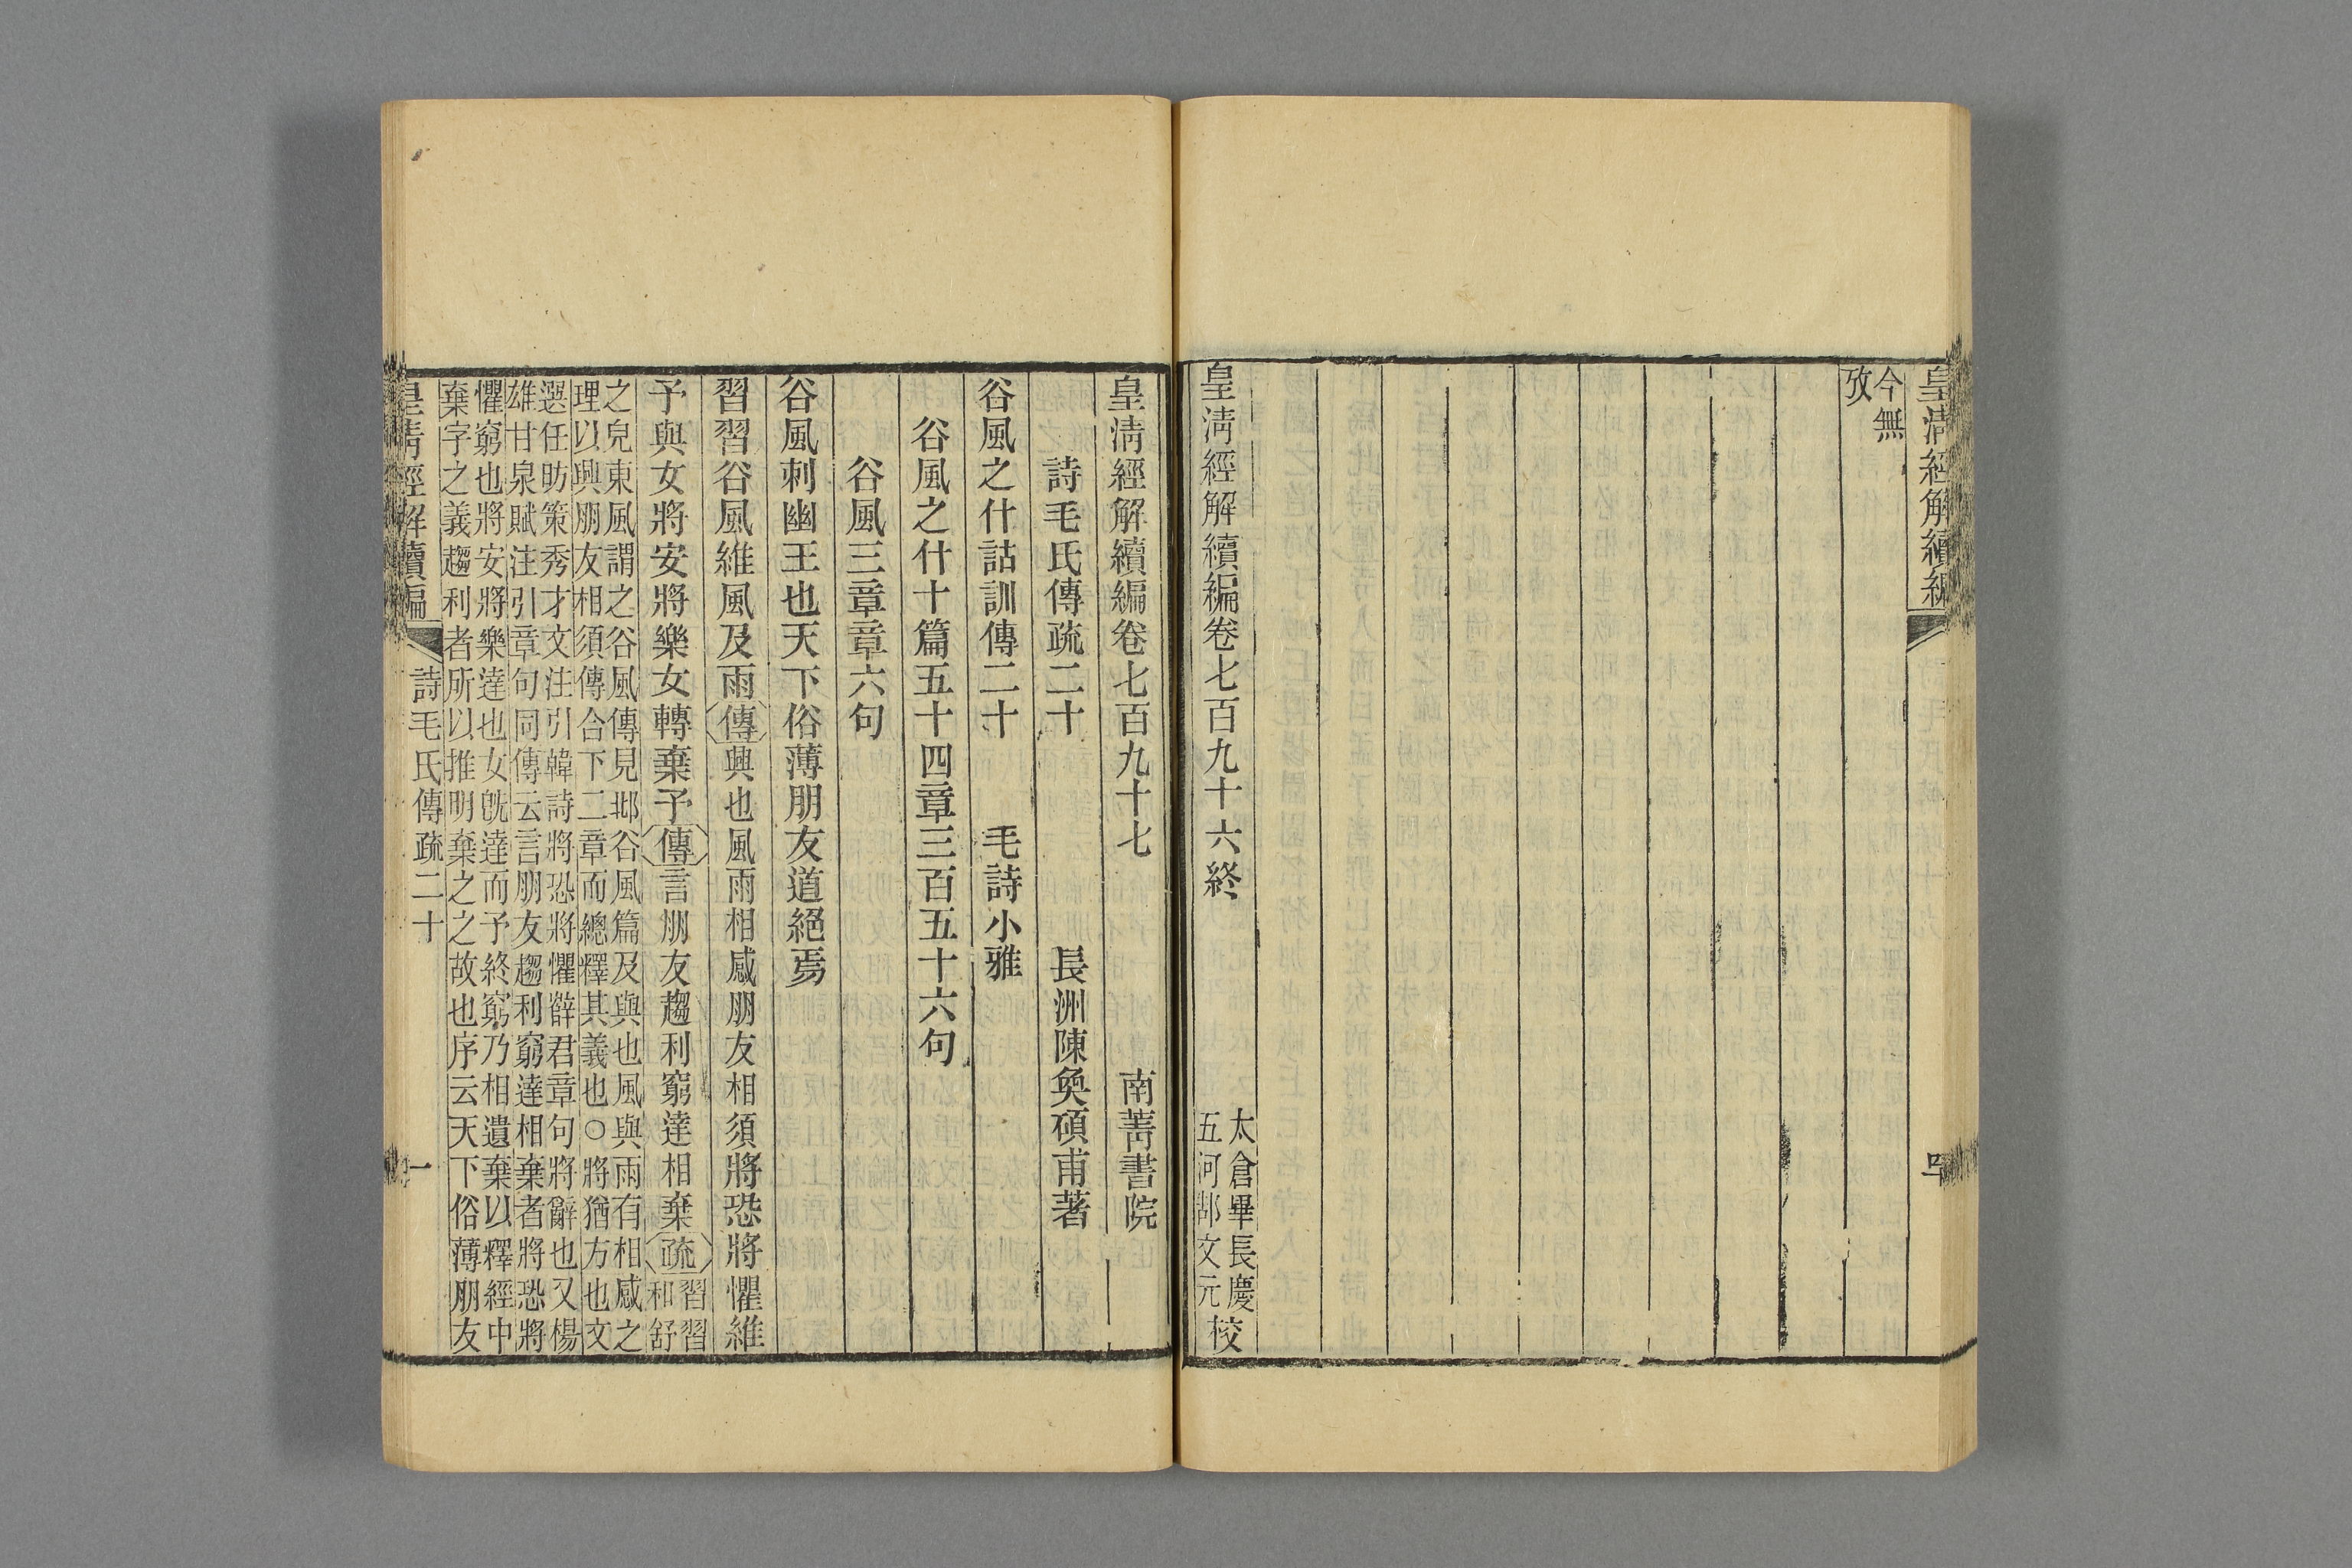 皇清經解續編
今無
攷
皇清經解續編卷七百九十六終
太倉畢長慶
五河鄀文元
校
皇清經解續編卷七百九十七
南菁書院
詩毛氏傳疏二十
長洲陳奐碩甫著
谷風之什詁訓傳二十
毛詩小雅
谷風之什十篇五十四章三百五十六句
谷風三章章六句
谷風刺幽王也天下俗薄朋友道絕焉
習習谷風維風及雨傳興也風雨相感朋友相須將恐將懼維
予與女將安將樂女轉棄予傳言朋友趨利窮達相棄疏
習習
和舒
之皃東風謂之谷風傳見邶谷風篇及與也風與雨有相感之
理以興朋友相須傳合下二章而總釋其義也○將猶方也文
選任昉策秀才文注引韓詩將恐將懼辥君章句將辭也又楊
雄甘泉賦注引章句同傳云言朋友趨利窮達相棄者將恐將
懼窮也將安將樂達也女旣達而予終窮乃相遺棄以釋經中
棄字之義趨利者所以推明棄之之故也序云天下俗薄朋友
皇清經解續編
詩毛氏傳疏二十
一